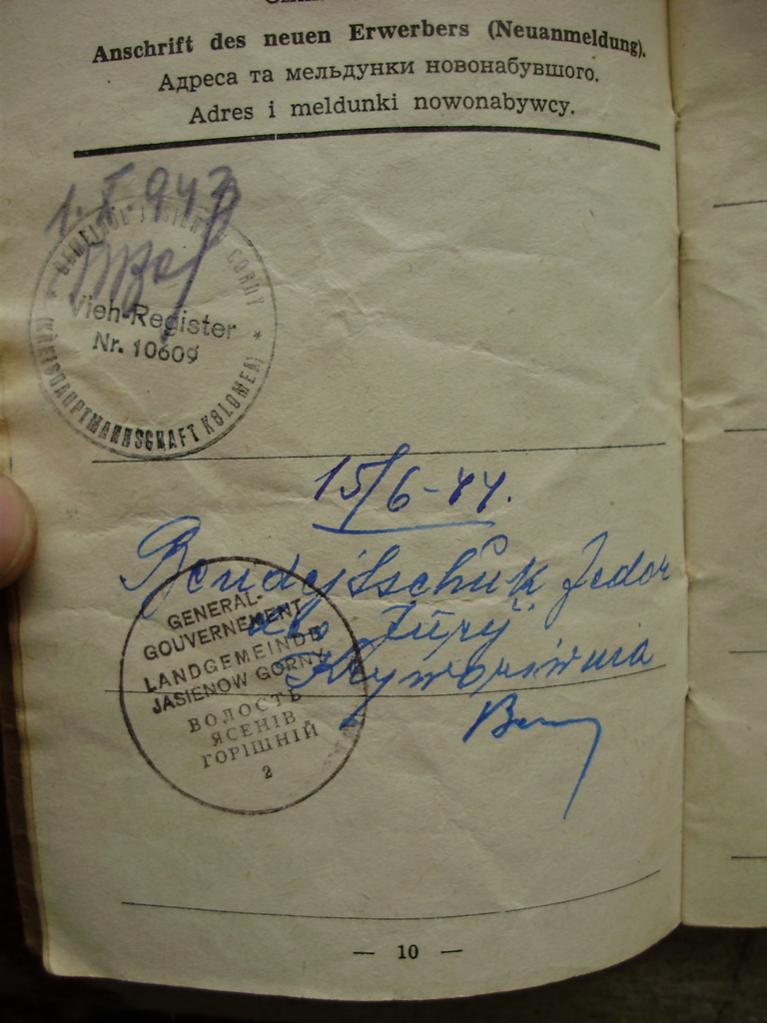 Anschrift des neuen Erwerbers (Neuanmeldung).
Адреса та мельдунки новонабувшого.
Adres i meldunki nowonabywcy.
1. X. 943
GEMEINDE JASIENOW GORNY
Vieh-Register
Nr. 10609
* (KREISHAUPTMANNSCHAFT KOLOMEA) *
15/6-44.
Bendejtschuk Fedor
des Juryj
Kryworiwnia
GENERAL-
GOUVERNEMENT
LANDGEMEINDE
JASIENOW GORNY
ВОЛОСТЬ
ЯСЕНІВ
ГОРІШНІЙ
2
— 10 —